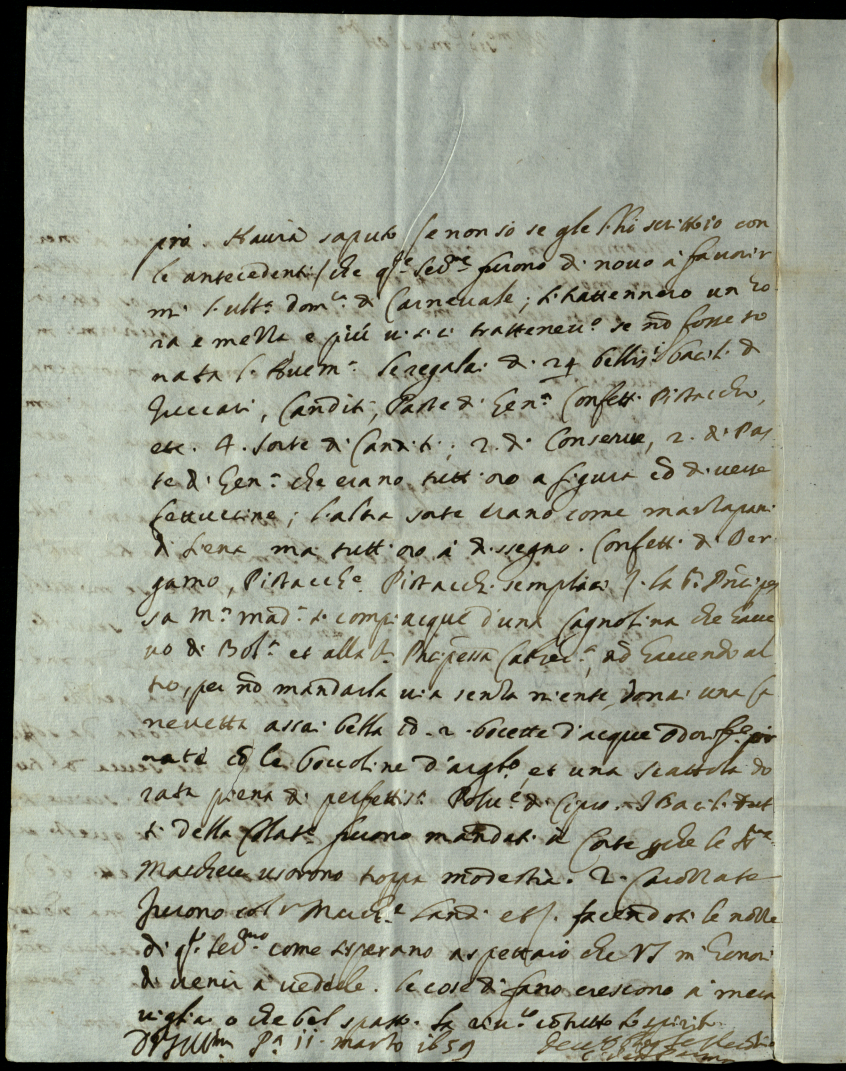 pio. Haurà saputo (e non so se gle l'hò scritto io con
le antecedenti) che q.ste Ser.me furono di nouo à fauorir
mi l'ult.a dom.ca di Carneuale; si trattennero un ho
ra e mezza e più ui si tratteneu.o se nõ fosse to
nata l'Auem.a le regalai di 24 bellis.i bacili di
Zuccari, Canditi, Paste di Gen.a Confetti Pistacchi,
etc. 4. sorte di Canditi; 2. di Conserue, 2. di Pas
te di Gen.a che erano tutti oro a figura cõ diuerse
fettuccine; l'altra sorte erano come marzapani
di Siena ma tutti oro à dissegno. Confetti di Ber
gamo, Pistacche Pistacchi semplici
sa m.a mad.a si compiacque d'una Cagnolina che haue
uo di Bol.a et alla S.ra Prñpessa nõ hauendo al
tro, per nõ mandarla uia senza niente, donai una
neuetta assai bella cõ 2. bocette d'acque odorif.e
nate cõ le boccoline d'arg.to et una scattola do
rata piena di perfettis.a Polu.e di Cipro. I Bacili tut
ti della Colat.e furono mandati à Corte che le S.re
Maschere usorono troppa modestia. 2. Carozzate
furono col S. March.e Landi et facendosi le nozze
di q.sto Ser.mo come sperano aspettarò che VS m'honori
di uenir à uederle. le cose di fano crescono à mera
uiglia o che bel spasso. la riu.o cõ tutto lo spirito
Di VS Ill.ma P.a 11 marzo 1659